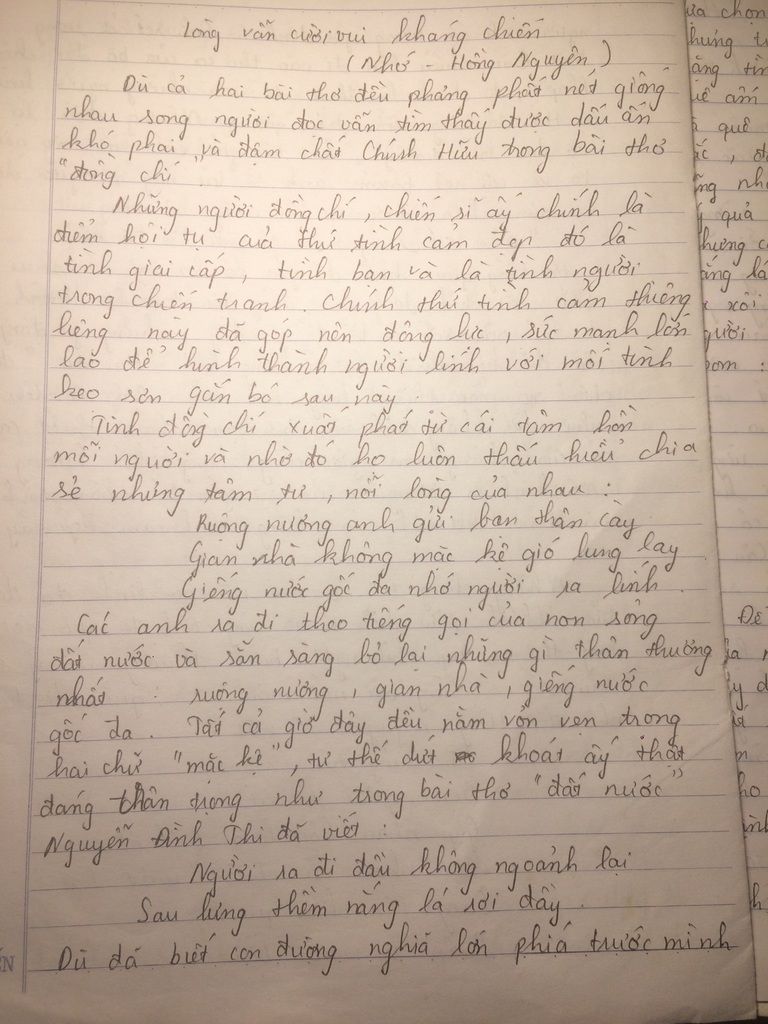 Lòng vẫn cười vui kháng chiến
(Nhớ - Hồng Nguyên)
Dù cả hai bài thơ đều phảng phất nét giống
nhau song người đọc vẫn tìm thấy được dấu ấn
khó phai và đậm chất Chính Hữu trong bài thơ
"đồng chí"
Những người đồng chí, chiến sĩ ấy chính là
điểm hội tụ của thứ tình cảm đẹp đó là
tình giai cấp, tình bạn và là tình người
trong chiến tranh. Chính thứ tình cảm thiêng
liêng này đã góp nên động lực, sức mạnh lớn
lao để hình thành người lính với mối tình
keo sơn gắn bó sau này.
Tình đồng chí xuất phát từ cái tâm hồn
mỗi người và nhờ đó họ luôn thấu hiểu chia
sẻ những tâm tư, nỗi lòng của nhau :
Ruộng nương anh gửi bạn thân cày
Gian nhà không mặc kệ gió lung lay
Giếng nước gốc đa nhớ người ra lính.
Các anh ra đi theo tiếng gọi của non sông
đất nước và sẵn sàng bỏ lại những gì thân thương
nhất : ruộng nương, gian nhà, giếng nước
gốc đa. Tất cả giờ đây đều nằm vỏn vẹn trong
hai chữ "mặc kệ", tư thế dứt khoát ấy thật
đáng trân trọng như trong bài thơ "đất nước"
Nguyễn Đình Thi đã viết :
Người ra đi đầu không ngoảnh lại
Sau lưng thềm nắng lá rơi đầy.
Dù đã biết con đường nghĩa lớn phía trước mình